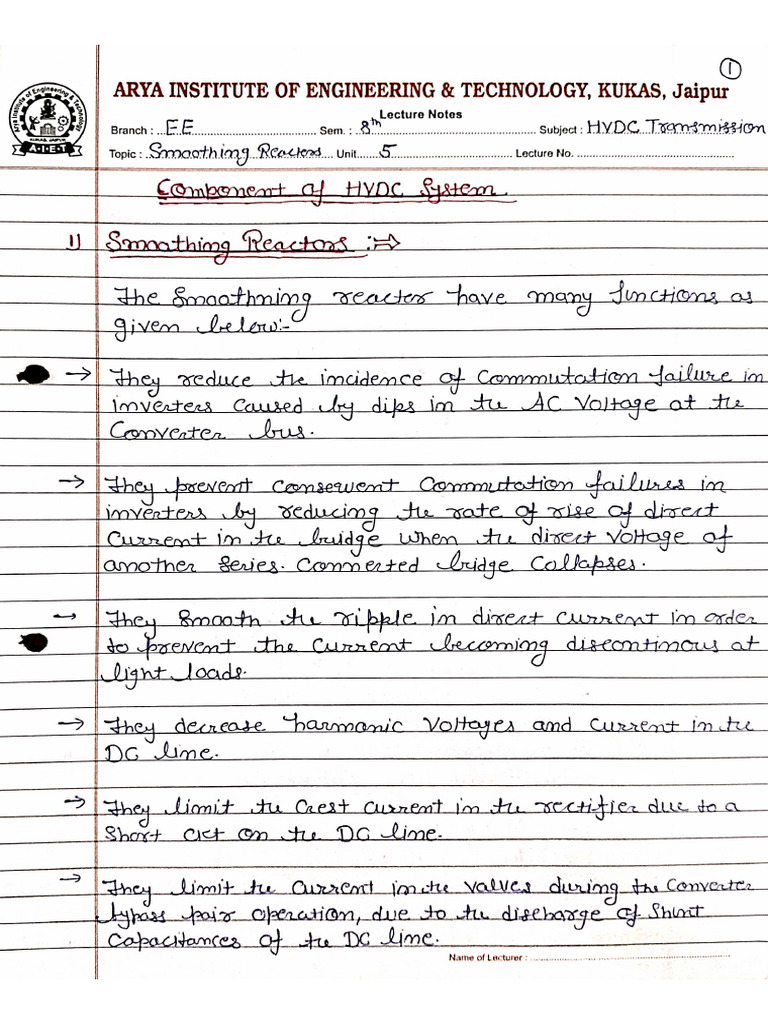 1
ARYA INSTITUTE OF ENGINEERING & TECHNOLOGY, KUKAS, Jaipur
Lecture Notes
Branch : EE Sem. : 8th Subject : HVDC Transmission
Topic : Smoothing Reactors Unit 5 Lecture No.
Arya Institute of Engineering & Technology
KUKAS, JAIPUR
A.I.E.T
Component of HVDC System
1) Smoothing Reactors :⇒
The Smoothning reactor have many functions as
given below:-
→ They reduce the incidence of Commutation failure in
inverters Caused by dips in the AC Voltage at the
Converter bus.
→ They prevent Consequent Commutation failures in
inverters by reducing the rate of rise of direct
Current in the bridge when the direct Voltage of
another Series. Connerted bridge Collapses.
→ They Smooth the ripple in direct current in order
to prevent the Current becoming discontinous at
light loads.
→ They decrease harmonic Voltages and Current in the
DC line.
→ They limit the Crest Current in the rectifier due to a
Short Ckt on the DC line.
→ They limit the Current in the valves during the Converter
bypass pair operation, due to the discharge of Shunt
Capacitances of the DC line.
Name of Lecturer :